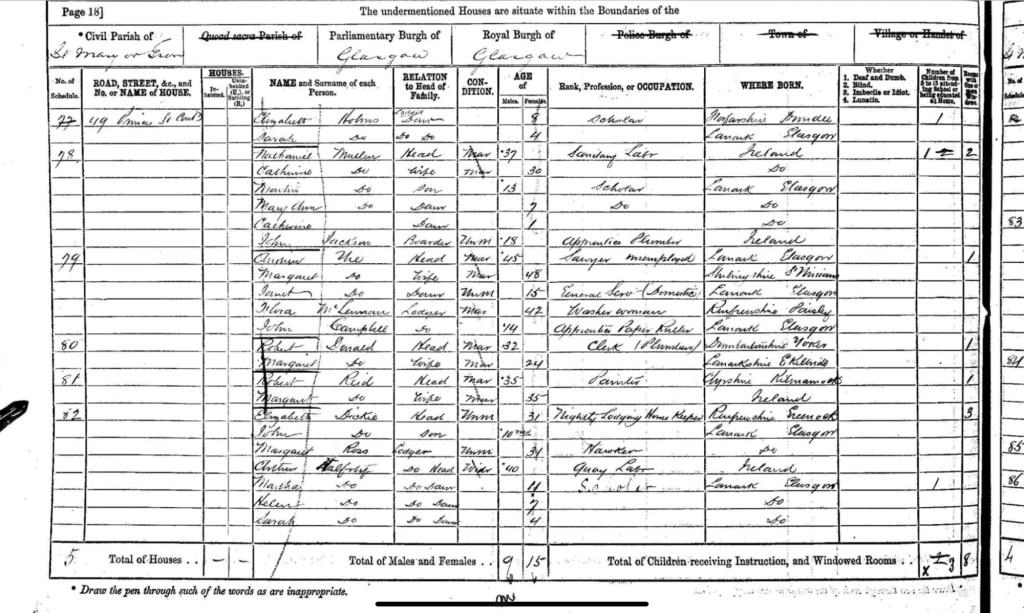 Page 18]
The undermentioned Houses are situate within the Boundaries of the
*Civil Parish of Quoad sacra Parish of Parliamentary Burgh of Royal Burgh of Police Burgh of Town of Village or Hamlet of
St Mary or Tron Glasgow Glasgow
No. of Schedule. ROAD, STREET, &c., and No. or NAME of HOUSE. HOUSES. Inhabited Uninhabited (U.), or Building (B.) NAME and Surname of each Person. RELATION to Head of Family. CONDITION. AGE of Males. Females. Rank, Profession, or OCCUPATION. WHERE BORN. Whether 1. Deaf and Dumb. 2. Blind. 3. Imbecile or Idiot. 4. Lunatic. Number of Children from 5 to 13 attending School or being educated at Home. Rooms with One or more Windows.
77 49 Princes St Elizabeth Holms Daur 8 Scholar Forfarshire Dundee 1
Sarah Do Do Do 4 Lanark Glasgow
78 Nathaniel Mullen Head Mar 37 Sanitary Labr Ireland 1 2
Catherine Do Wife Mar 30 Do
Martin Do Son 13 Scholar Lanark Glasgow
Mary Ann Do Daur 7 Do Do
Catherine Daur 1 Do
John Jackson Boarder Unm 18 Apprentice Plumber Ireland
79 Andrew Ure Head Mar 45 Sawyer unemployed Lanark Glasgow 1
Margaret Do Wife Mar 48 Stirlingshire St Ninians
Janet Do Daur Unm 15 General Serv (Domestic) Lanark Glasgow
Flora McLennan Lodger Mar 42 Washerwoman Renfrewshire Paisley
John Campbell Do 14 Apprentice Paper Ruler Lanark Glasgow
80 Robert Donald Head Mar 32 Clerk (Plumbers) Dumbartonshire 1
Margaret Do Wife Mar 24 Lanarkshire E Kilbride
81 Robert Reid Head Mar 35 Painter Ayrshire Kilmarnock 1
Margaret Do Wife Mar 35 Ireland
82 Elizabeth Dickie Head Unm 31 Nightly Lodging House Keeper Renfrewshire Greenock 3
John Do Son 10 mo Lanark Glasgow
Margaret Ross Lodger Unm 34 Hawker Do
Arthur Do Head Widr 40 Quay Labr Ireland
Martha Do Do Daur 11 Scholar Lanark Glasgow 1
Helen Do Do Daur 7 Do
Sarah Do Do Daur 4 Do
5 Total of Houses . . – – Total of Males and Females . . 9 15 Total of Children receiving Instruction, and Windowed Rooms . . 3 8
* Draw the pen through such of the words as are inappropriate.
83
84
85
86
4